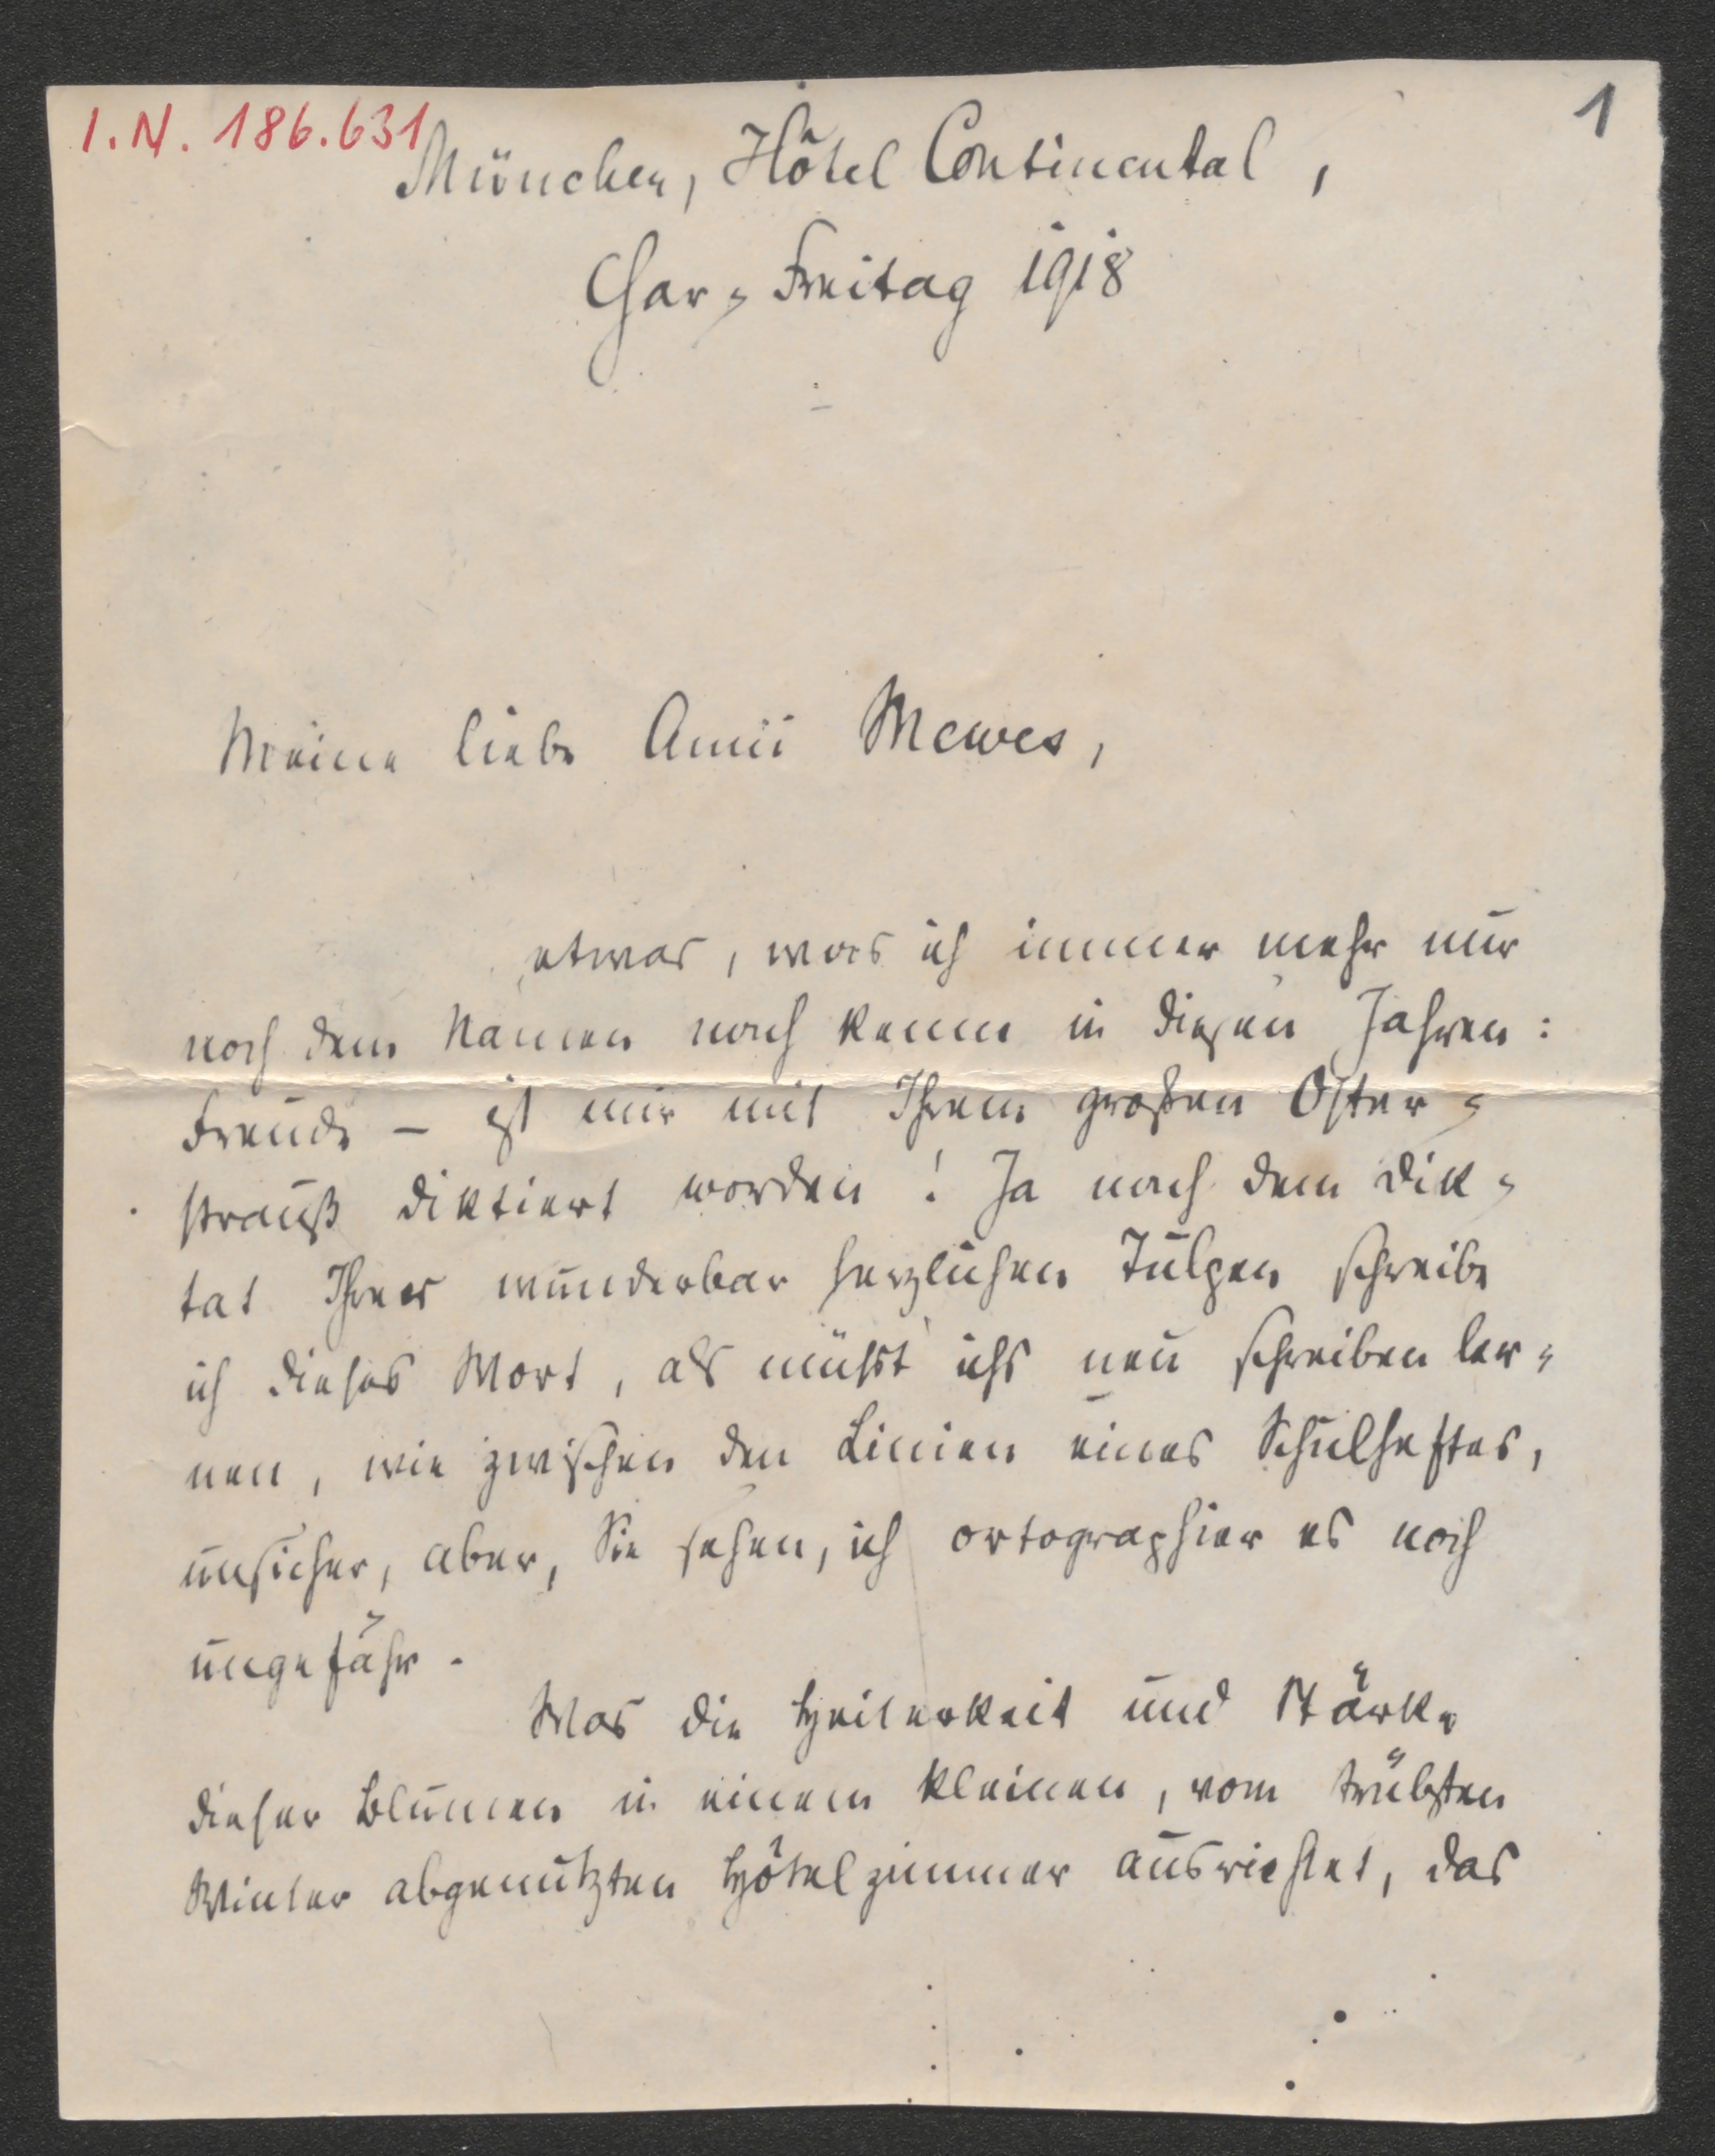 I.N. 186.631
1
München, Hôtel Continental,
Char-Freitag 1918
Meine liebe Annii Mewes,
etwas, was ich immer mehr nur
noch dem Namen nach kenne in diesen Jahren:
Freude – ist mir mit Ihrem großen Oster-
strauß diktiert worden! Ja nach dem Dik-
tat Ihrer wunderbar herzlichen Tulpen schreibe
ich dieses Wort, als müßt' ichs neu schreiben ler-
nen, wie zwischen den Linien eines Schulheftes,
unsicher, aber, Sie sehen, ich ortographier es noch
ungefähr.
Was die Heiterkeit und Stärke
dieser Blumen in einem kleinen, vom trübsten
Winter abgenutzten Hôtelzimmer ausrichtet, das